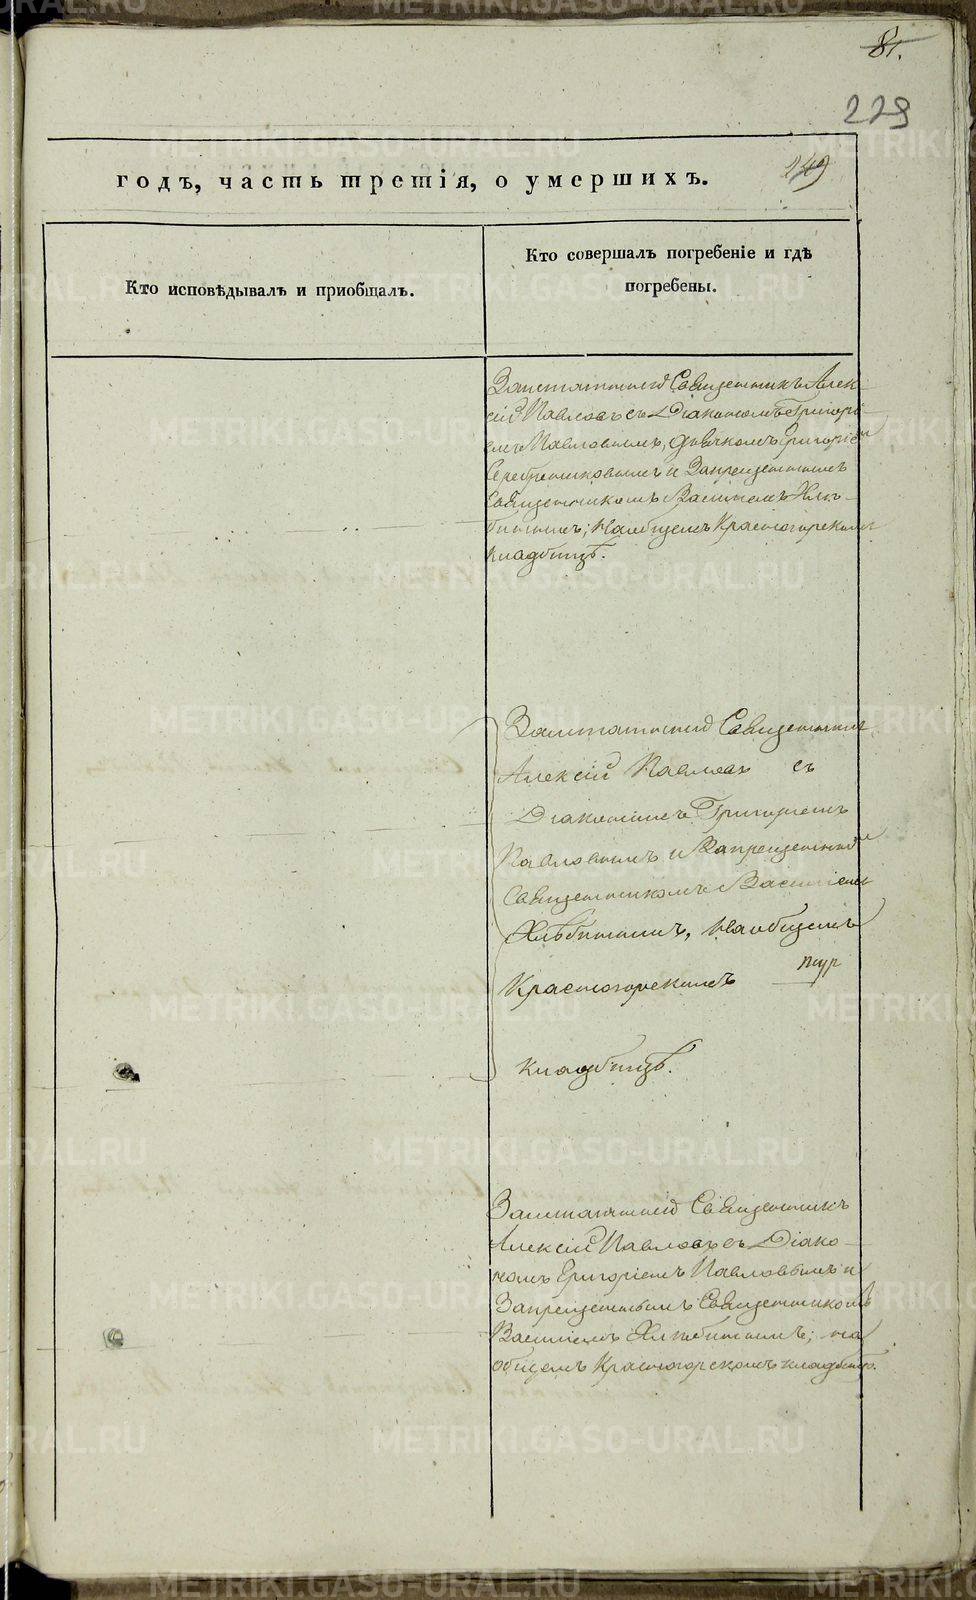 81.
229
249
годъ, часть третія, о умершихъ.
Кто исповѣдывалъ и приобщалъ.
Кто совершалъ погребеніе и гдѣ
погребены.
Заштатный Священникъ Алек-
сій Павловъ съ Діакономъ Григорі-
емъ Павловымъ, дьячкомъ Григоріем
Серебренниковымъ и Запрещеннымъ
Священникомъ Василіемъ Хлѣ-
бинымъ; На общемъ Красногорскомъ
кладбищѣ.
Заштатный Священникъ
Алексій Павловъ съ
Діакономъ Григоріемъ
Павловымъ и Запрещенным
Священникомъ Василіемъ
Хлѣбинымъ, На общемъ
Красногорскомъ
кладбищѣ.
Заштатный Священникъ
Алексій Павловъ съ Діако-
номъ Григоріемъ Павловымъ и
Запрещеннымъ Священникомъ
Василіемъ Хлѣбинымъ; на
общемъ Красногорскомъ кладбищѣ.
METRIKI.GASO-URAL.RU